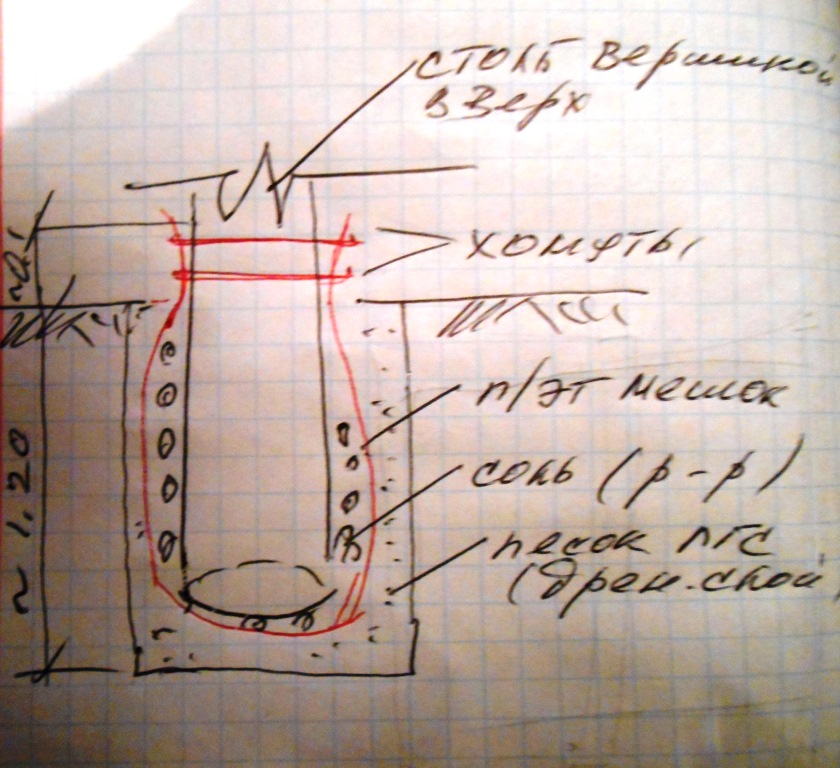 столб вершиной
вверх
~0.1
хомуты
п/эт мешок
соль (р-р)
~1.20
песок ПГС
(дрен. слой